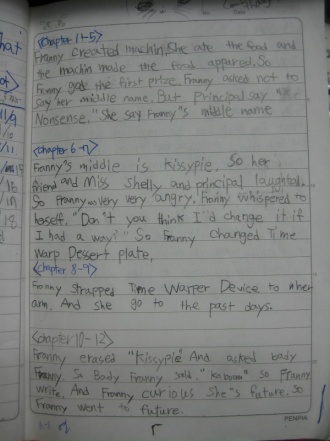 <Chapter 1-5>
Franny created machin. She ate the food and
the machin made the food appared. So
Franny got the first prize. Franny asked not to
say her middle name. But Principal say
Nonsense." She say Franny"s middle name
<chapter 6-7>
Franny's middle is kissypie. So her
friend and Miss Shelly and principal laughted.
So Franny was very very angry. Franny whispered to
herself, "Don"t you think I'd change it if
I had a way?" So Franny changed Time
Warp Dessert plate,
<chapter 8-9>
Franny strapped Time Warper Device to her
arm. And she go to the past days.
<chapter 10-12>
Franny erased "Kissypie" And asked baby
Franny. So Body Franny said, "kaboom" so Franny
write. And Franny curious she"s future. So
Franny went to future.
PENPIA